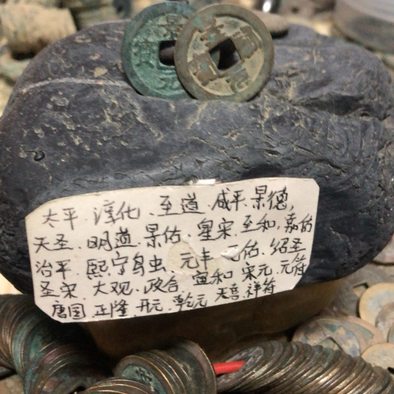 太平、淳化、至道、咸平、景德、
天圣、明道、景佑、皇宋、至和、嘉佑
治平、熙宁鸟虫、元丰、元佑、绍圣
圣宋、大观、政合、宣和、宋元、元符
唐国、正隆、开元、乾元、天喜、祥符